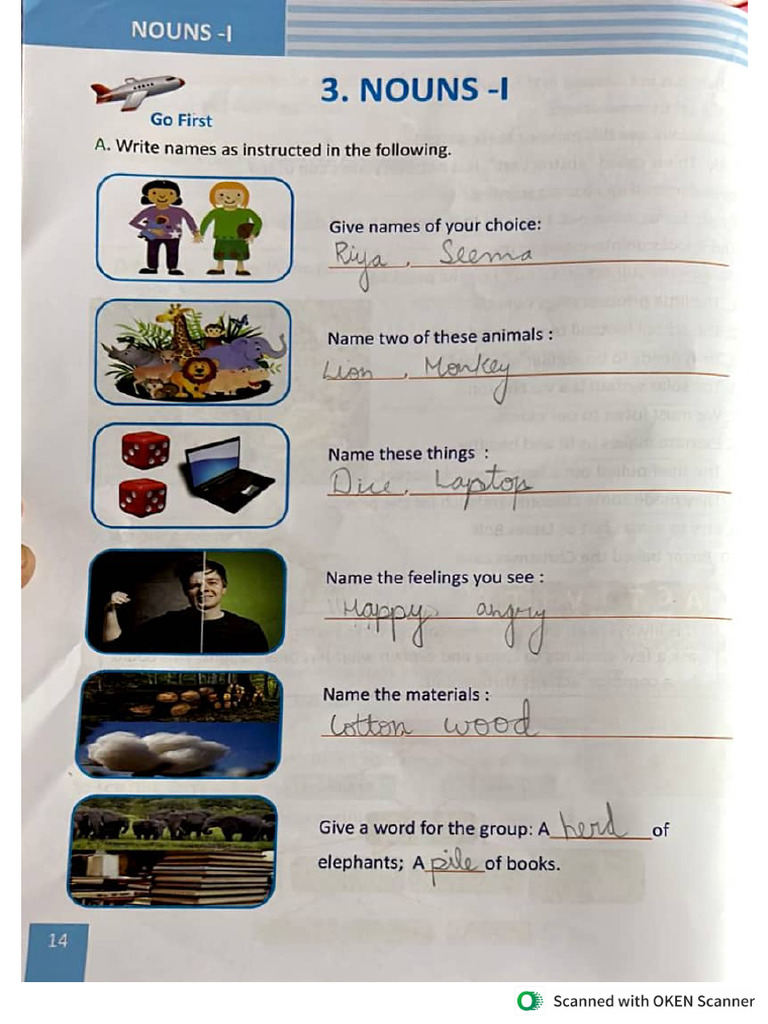 NOUNS -I
3. NOUNS -I
Go First
A. Write names as instructed in the following.
Give names of your choice:
Riya, Seema
Name two of these animals :
Lion, Monkey
Name these things :
Dice, Laptop
Name the feelings you see :
Happy, angry
Name the materials :
Cotton wood
Give a word for the group: A herd of
elephants; A pile of books.
14
Scanned with OKEN Scanner